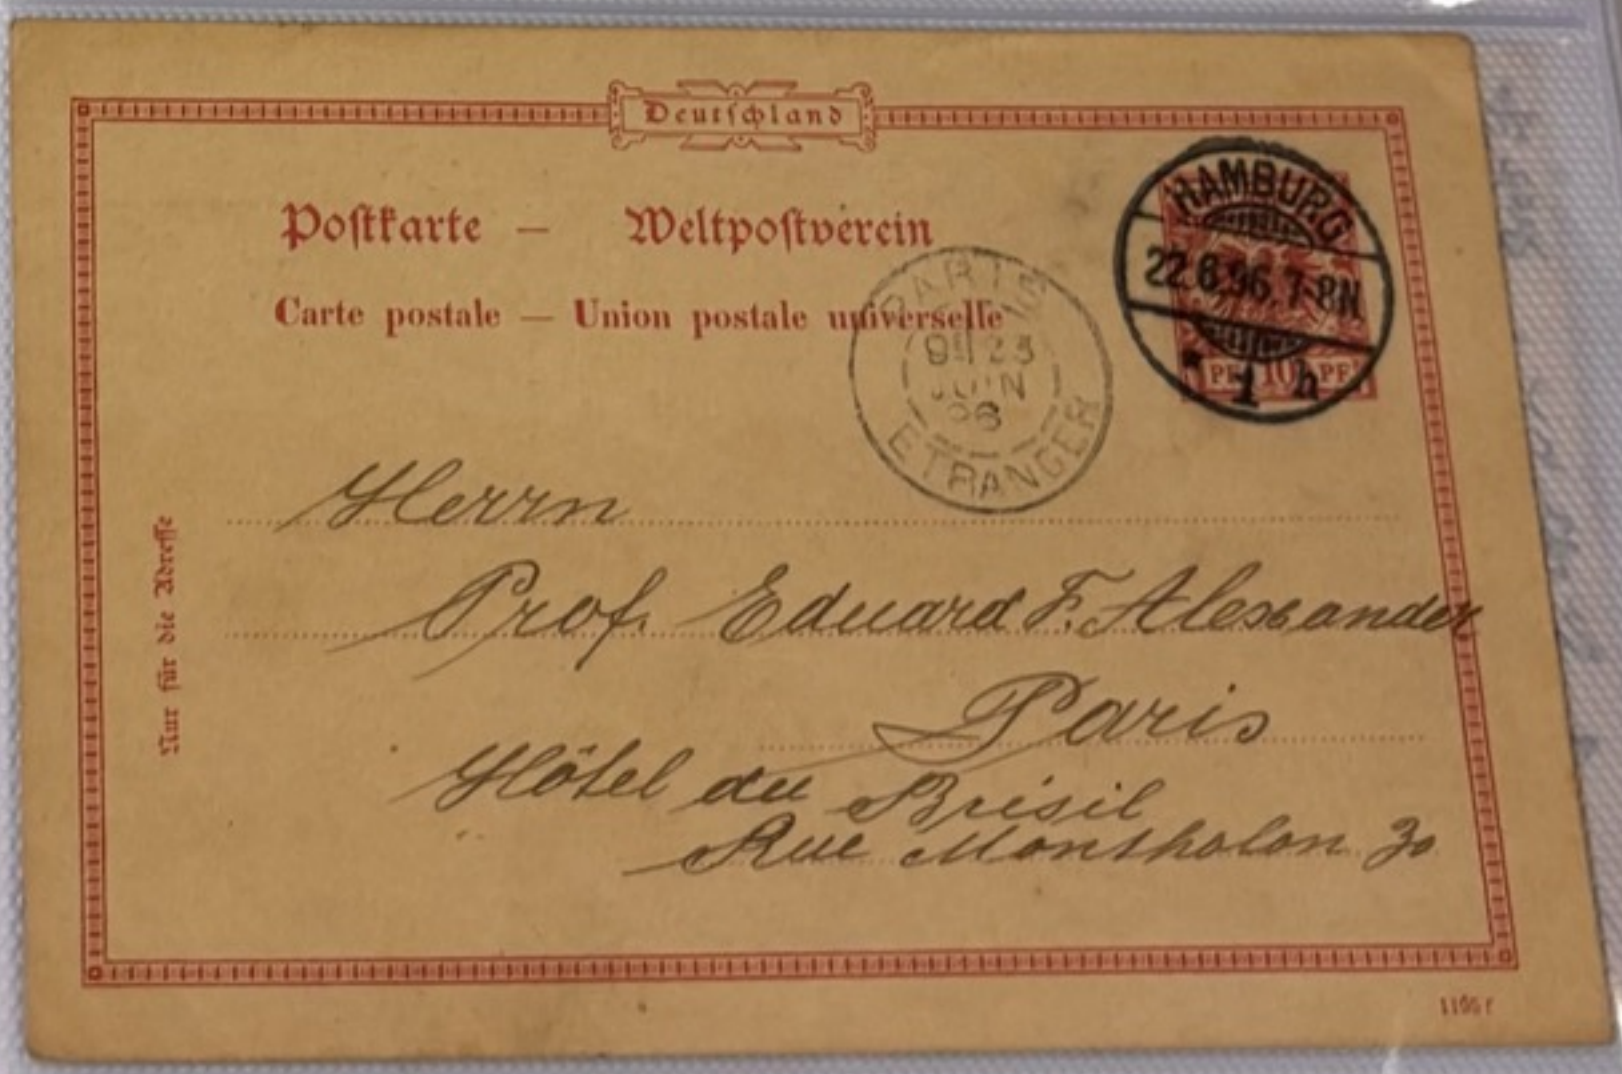 Deutschland
Postkarte — Weltpostverein
Carte postale — Union postale universelle
HAMBURG
22.6.96. 7-8N
* 1 h
PF 10 PF
PARIS
23
JUIN
96
ETRANGER
Nur für die Adresse
Herrn
Prof. Eduard F. Alexander
Paris
Hôtel du Brésil
Rue Montholon 30